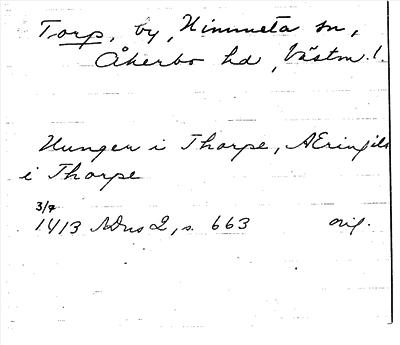 Torp, by, Himmeta sn,
Åkerbo hd, Västm. l.
Hunger i Thorpe, AEringils
i Thorpe
3/7
1413 NDns 2, s. 663 orig.